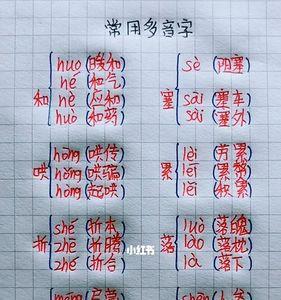 常用多音字
和 huo (暖和) hé (和气) hè (应和) huò (和药)
塞 sè (阻塞) sāi (塞车) sài (塞外)
哄 hōng (哄传) hǒng (哄骗) hòng (起哄)
累 lèi (劳累) léi (累赘) lěi (积累)
折 shé (折本) zhē (折腾) zhé (折合)
落 luò (落魄) lào (落枕) là (落下)
小红书